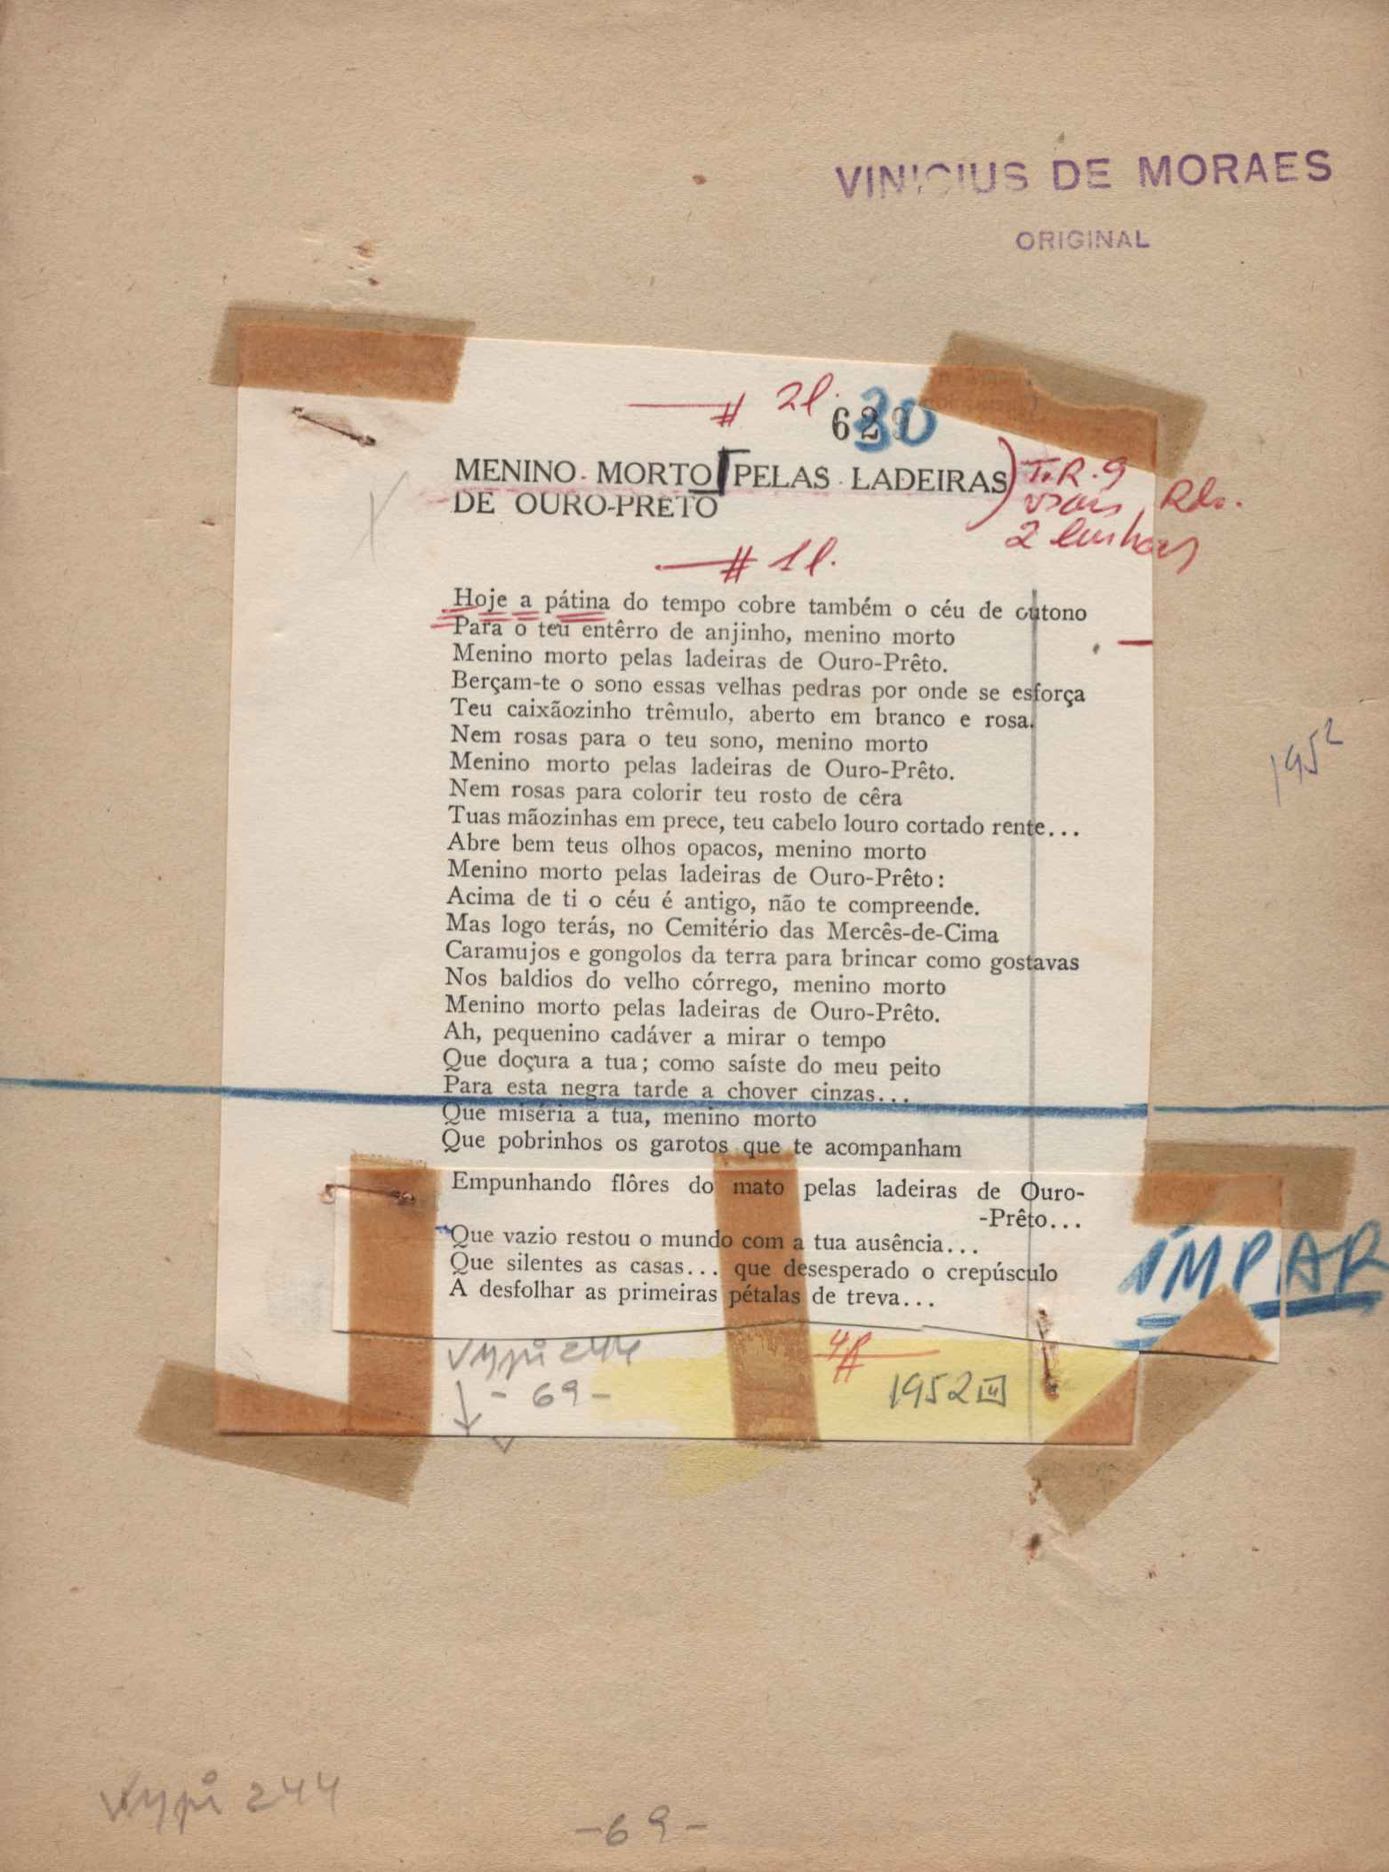 VINICIUS DE MORAES
ORIGINAL
# 2l.
62 30
MENINO MORTO PELAS LADEIRAS
DE OURO-PRETO
T.R. 9
2 linhas
# 1l.
Hoje a pátina do tempo cobre também o céu de outono
Para o teu entêrro de anjinho, menino morto
Menino morto pelas ladeiras de Ouro-Prêto.
Berçam-te o sono essas velhas pedras por onde se esforça
Teu caixãozinho trêmulo, aberto em branco e rosa.
Nem rosas para o teu sono, menino morto
Menino morto pelas ladeiras de Ouro-Prêto.
Nem rosas para colorir teu rosto de cêra
Tuas mãozinhas em prece, teu cabelo louro cortado rente...
Abre bem teus olhos opacos, menino morto
Menino morto pelas ladeiras de Ouro-Prêto:
Acima de ti o céu é antigo, não te compreende.
Mas logo terás, no Cemitério das Mercês-de-Cima
Caramujos e gongolos da terra para brincar como gostavas
Nos baldios do velho córrego, menino morto
Menino morto pelas ladeiras de Ouro-Prêto.
Ah, pequenino cadáver a mirar o tempo
Que doçura a tua; como saíste do meu peito
Para esta negra tarde a chover cinzas...
Que miséria a tua, menino morto
Que pobrinhos os garotos que te acompanham
Empunhando flôres do mato pelas ladeiras de Ouro-
-Prêto...
Que vazio restou o mundo com a tua ausência...
Que silentes as casas... que desesperado o crepúsculo
A desfolhar as primeiras pétalas de treva...
1952
ÍMPAR
244
- 69 -
1952
244
- 69 -